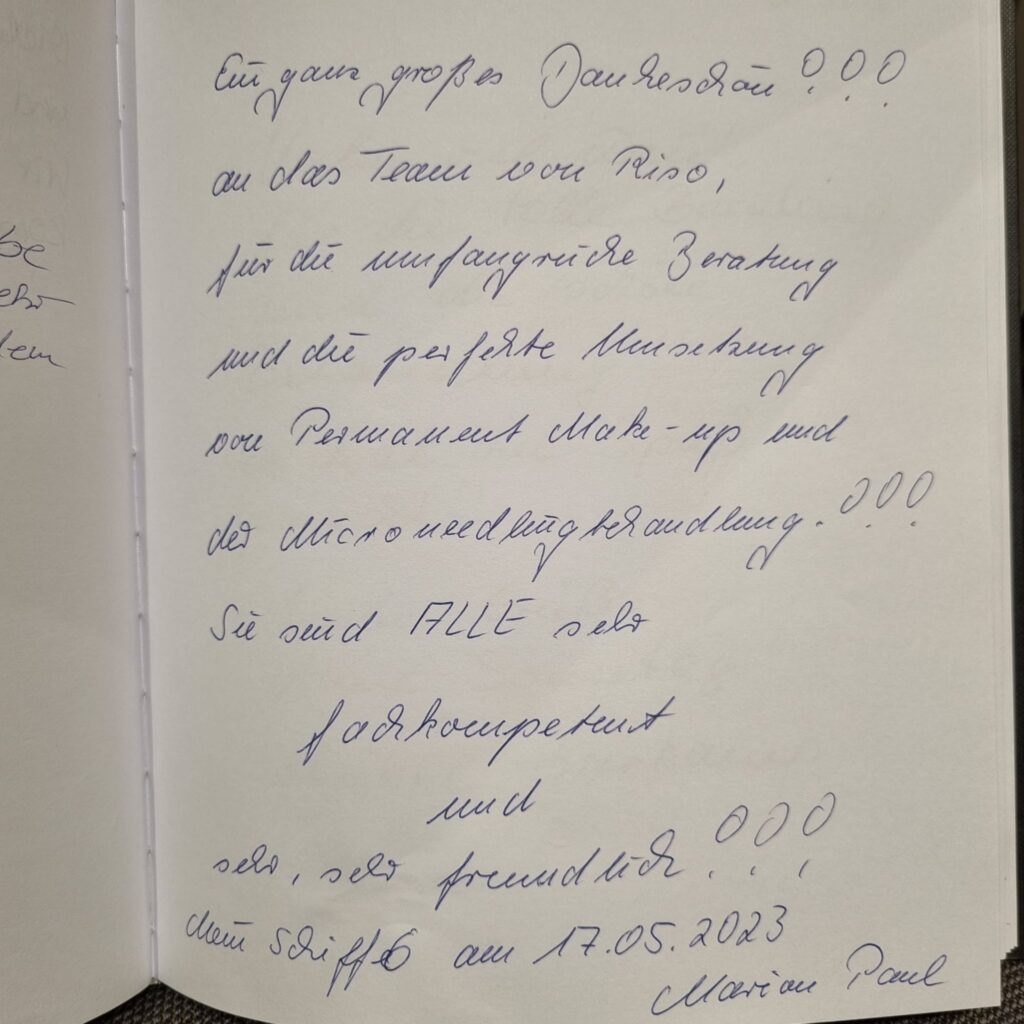 be
ehr
dem
Ein ganz großes Dankeschön!!!
an das Team von Riso,
für die umfangreiche Beratung
und die perfekte Umsetzung
von Permanent Make-up und
der Microneedlingbehandlung.!!!
Sie sind ALLE sehr
fachkompetent
und
sehr, sehr freundlich!!!
Mein Schiff 6 am 17.05.2023
Marion Paul